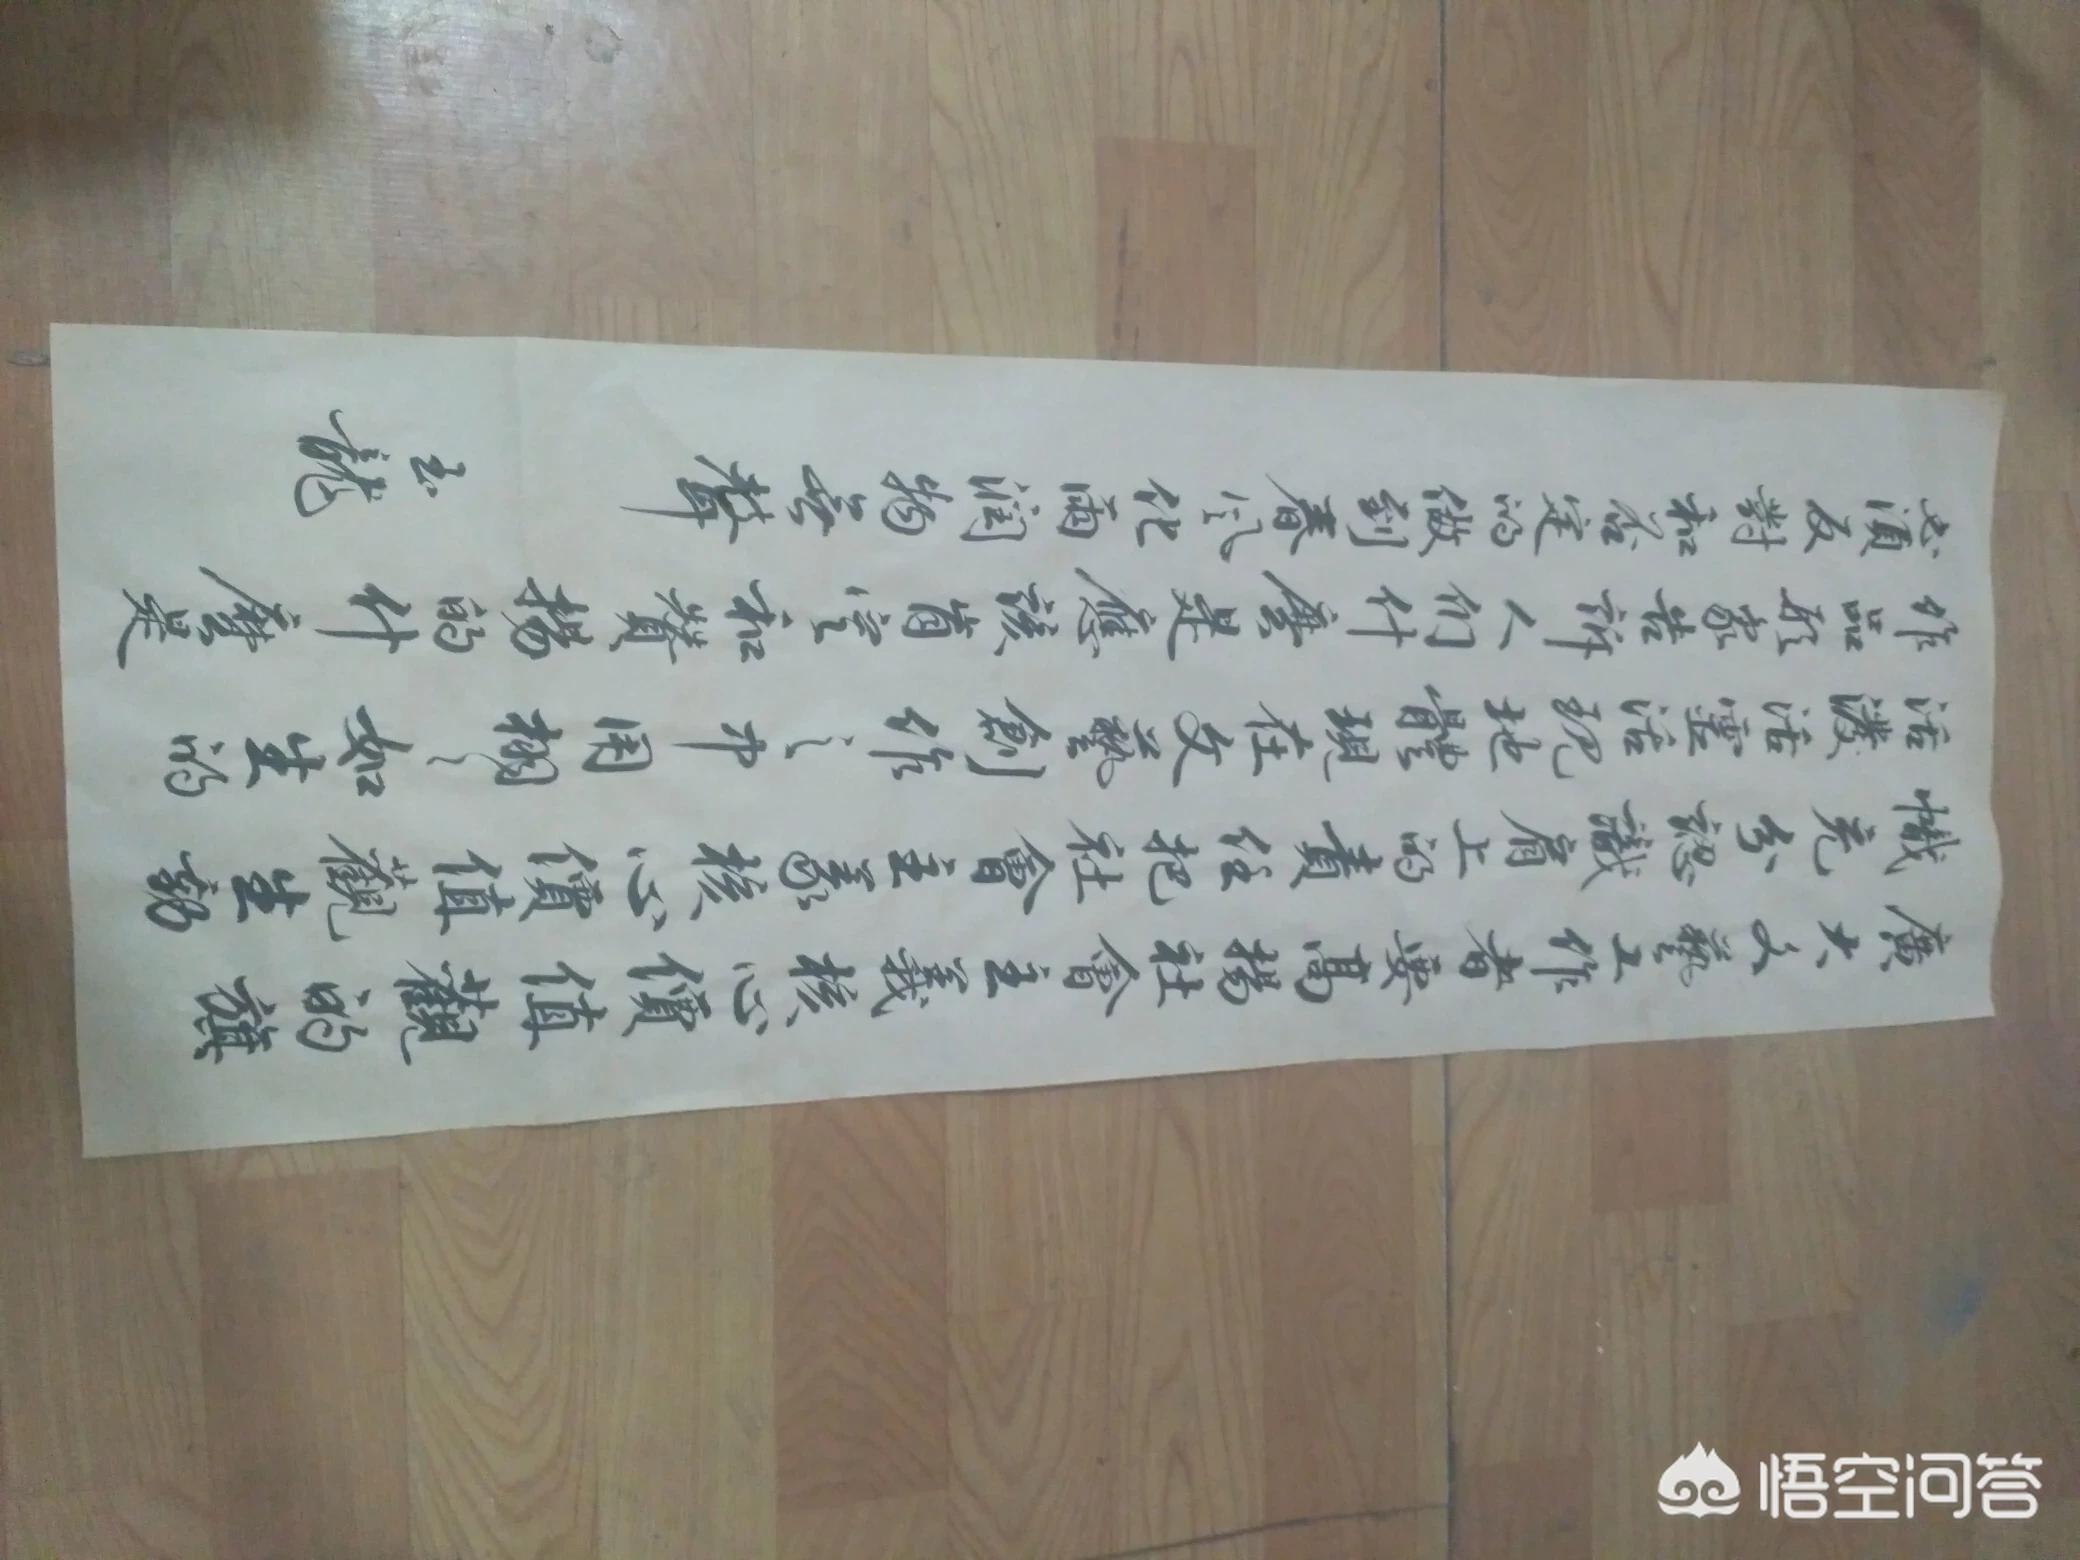 廣大文藝工作者要高揚社會主義核心價值觀的旗
幟充分認識肩上的責任把社會主義核心價值觀生動
活潑活靈活現地體現在文藝創作之中用栩栩如生的
作品形象告訴人們什麼是應該肯定和贊揚的什麼是
必須反對和否定的做到春風化雨润物无聲
玉龍
悟空问答